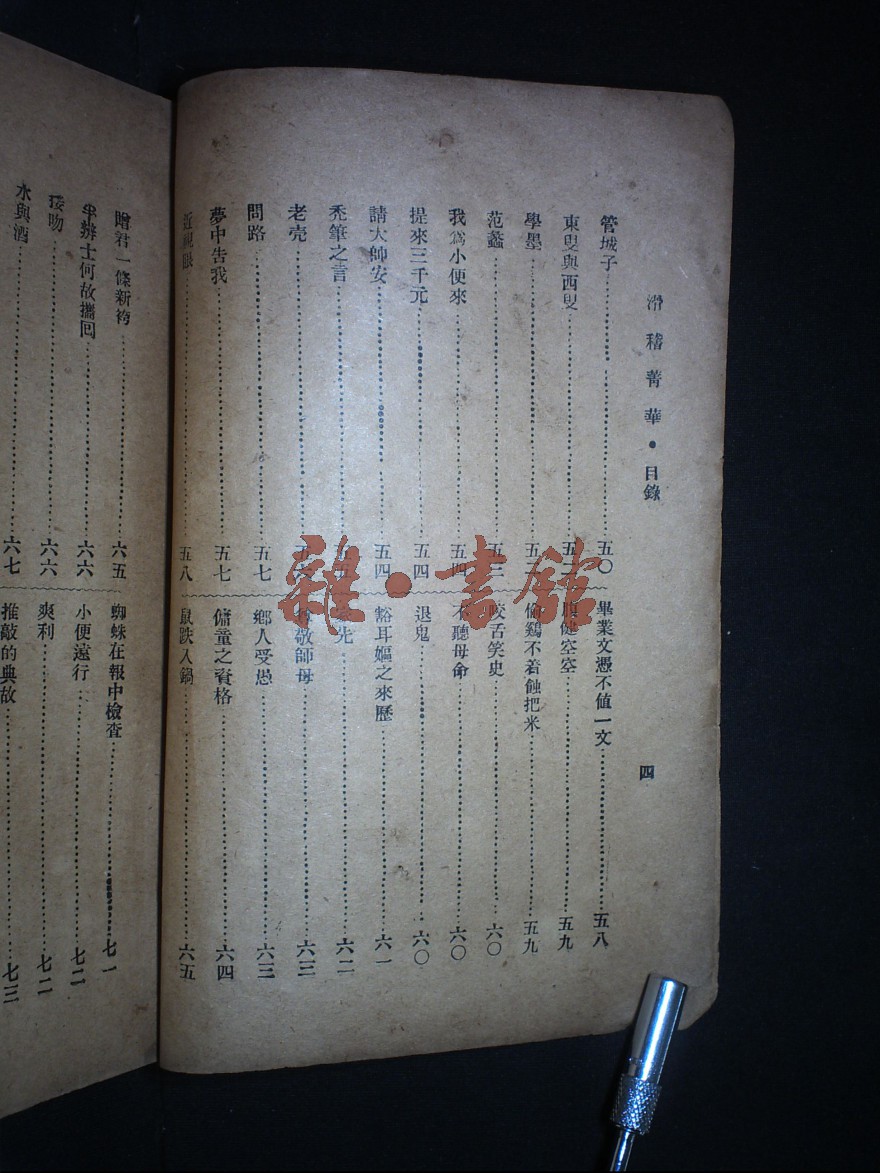 滑稽菁華・目錄
四
管城子……五〇
東叟與西叟……五二
學墨……五二
范蠡……五三
我爲小便來……五四
提來三千元……五四
請大師安……五四
禿筆之言……五五
老壳……五六
問路……五七
夢中告我……五七
近視眼……五八
畢業文憑不值一文……五八
腹健空空……五九
偷鷄不着蝕把米……五九
咬舌笑史……六〇
不聽母命……六〇
退鬼……六〇
豁耳嫗之來歷……六一
先……六二
敬師母……六三
鄉人受愚……六三
傭童之資格……六四
鼠跌入鍋……六五
贈君一條新袴……六五
半辦士何故攜囘……六六
接吻……六六
水與酒……六七
蜘蛛在報中檢查……七一
小便遠行……七二
爽利……七二
推敲的典故……七三
雜・書館